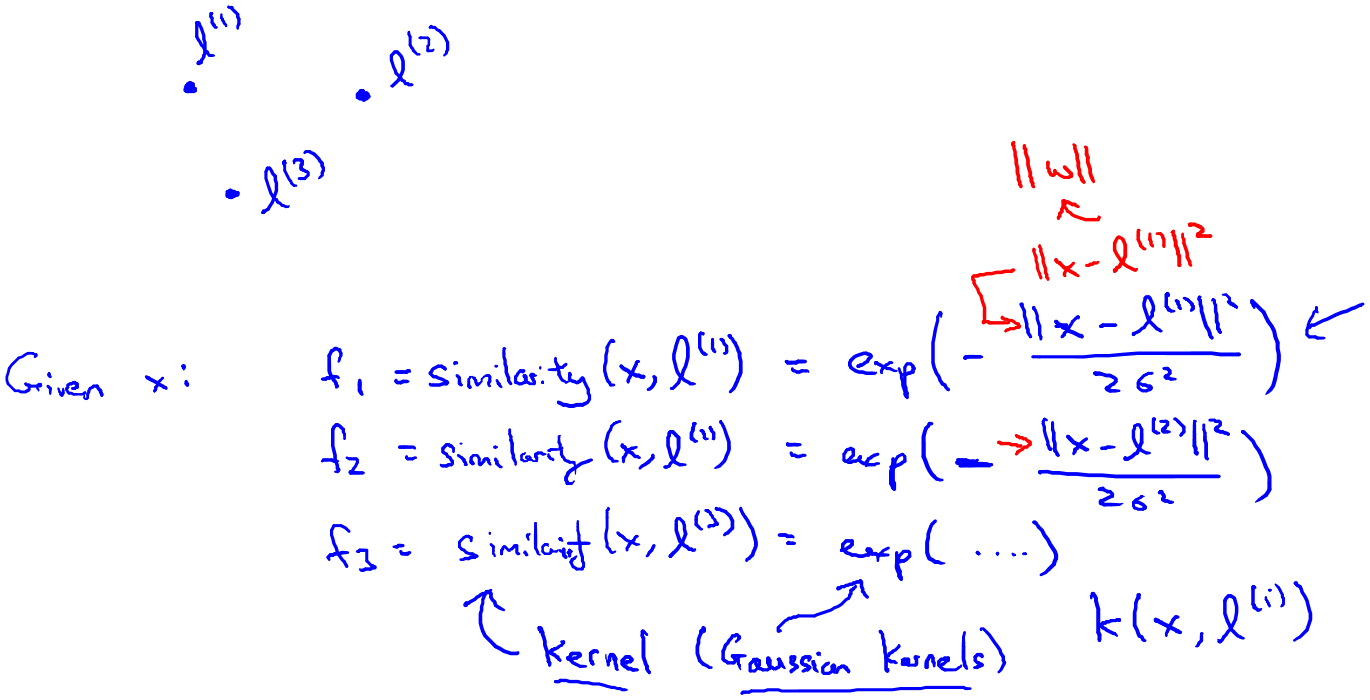 l^(1)
l^(2)
l^(3)
||w||
||x - l^(1)||^2
Given x: f_1 = similarity(x, l^(1)) = exp(- ||x - l^(1)||^2 / 2σ^2)
f_2 = similarity(x, l^(2)) = exp(- ||x - l^(2)||^2 / 2σ^2)
f_3 = similarity(x, l^(3)) = exp(....)
kernel (Gaussian kernels) k(x, l^(i))